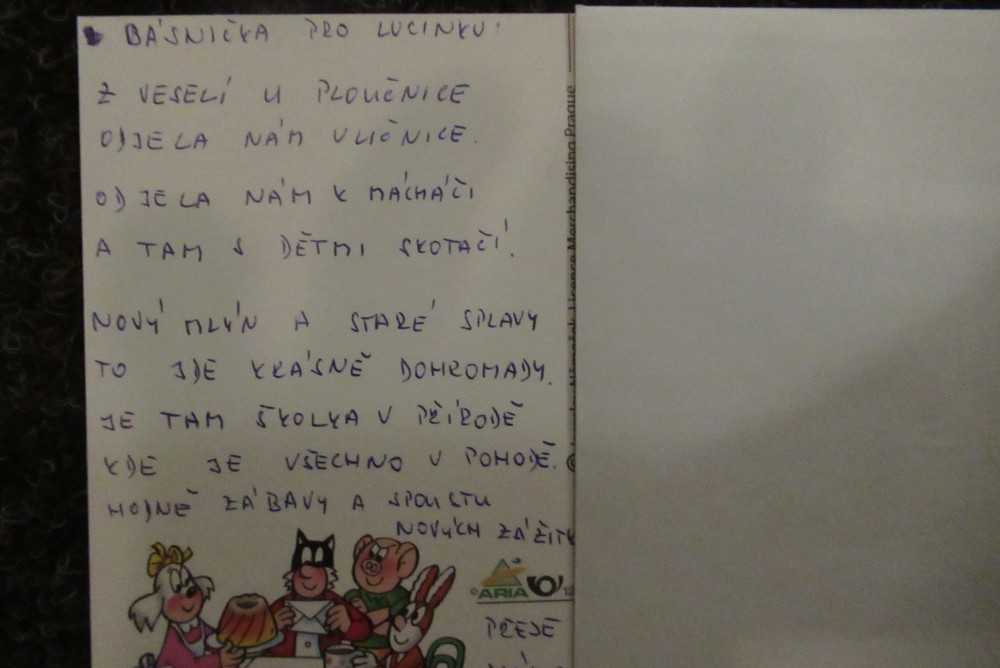 BÁSNIČKA PRO LUCINKU:
Z VESELÍ U PLOUČNICE
ODJELA NÁM ULIČNICE.
ODJELA NÁM K MÁCHÁČI
A TAM S DĚTMI SKOTAČÍ.
NOVÝ MLÝN A STARÉ SPLAVY
TO JDE KRÁSNĚ DOHROMADY.
JE TAM ŠKOLKA V PŘÍRODĚ
KDE JE VŠECHNO V POHODĚ.
HODNĚ ZÁBAVY A SPOUSTU
NOVÝCH
ARIA
PŘEJE
Licence Merchandising Prague